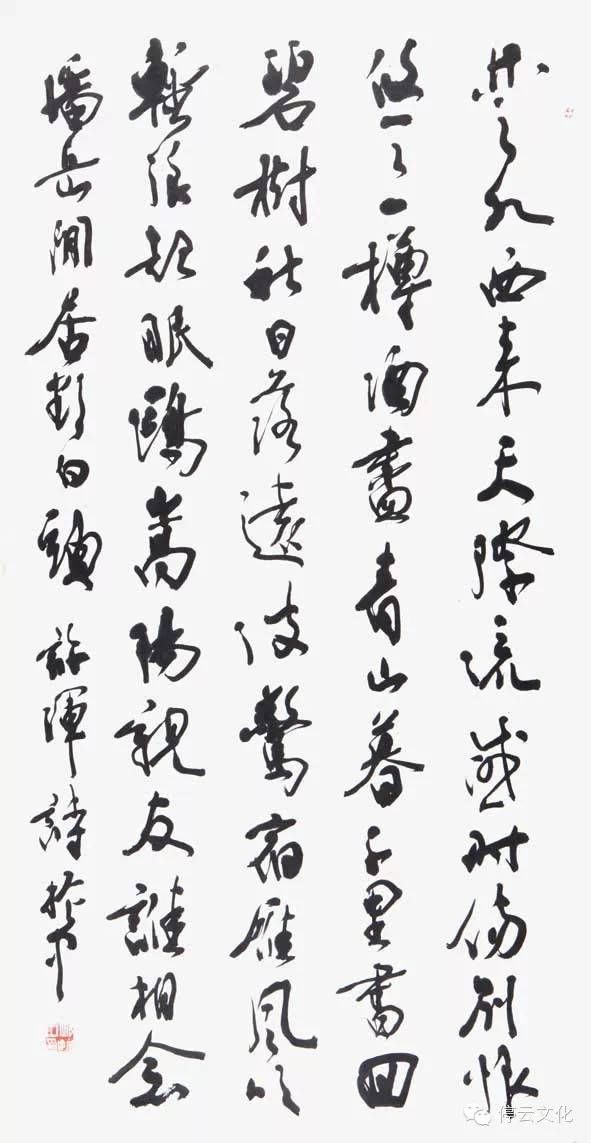 楚水西來天際流感時傷別恨
悠悠一樽酒盡青山暮千里書回
碧樹秋日落遠波驚宿雁風吹
輕浪起眠鷗嵩陽親友誰相念
潘岳閒居白頭 許渾詩
停云文化